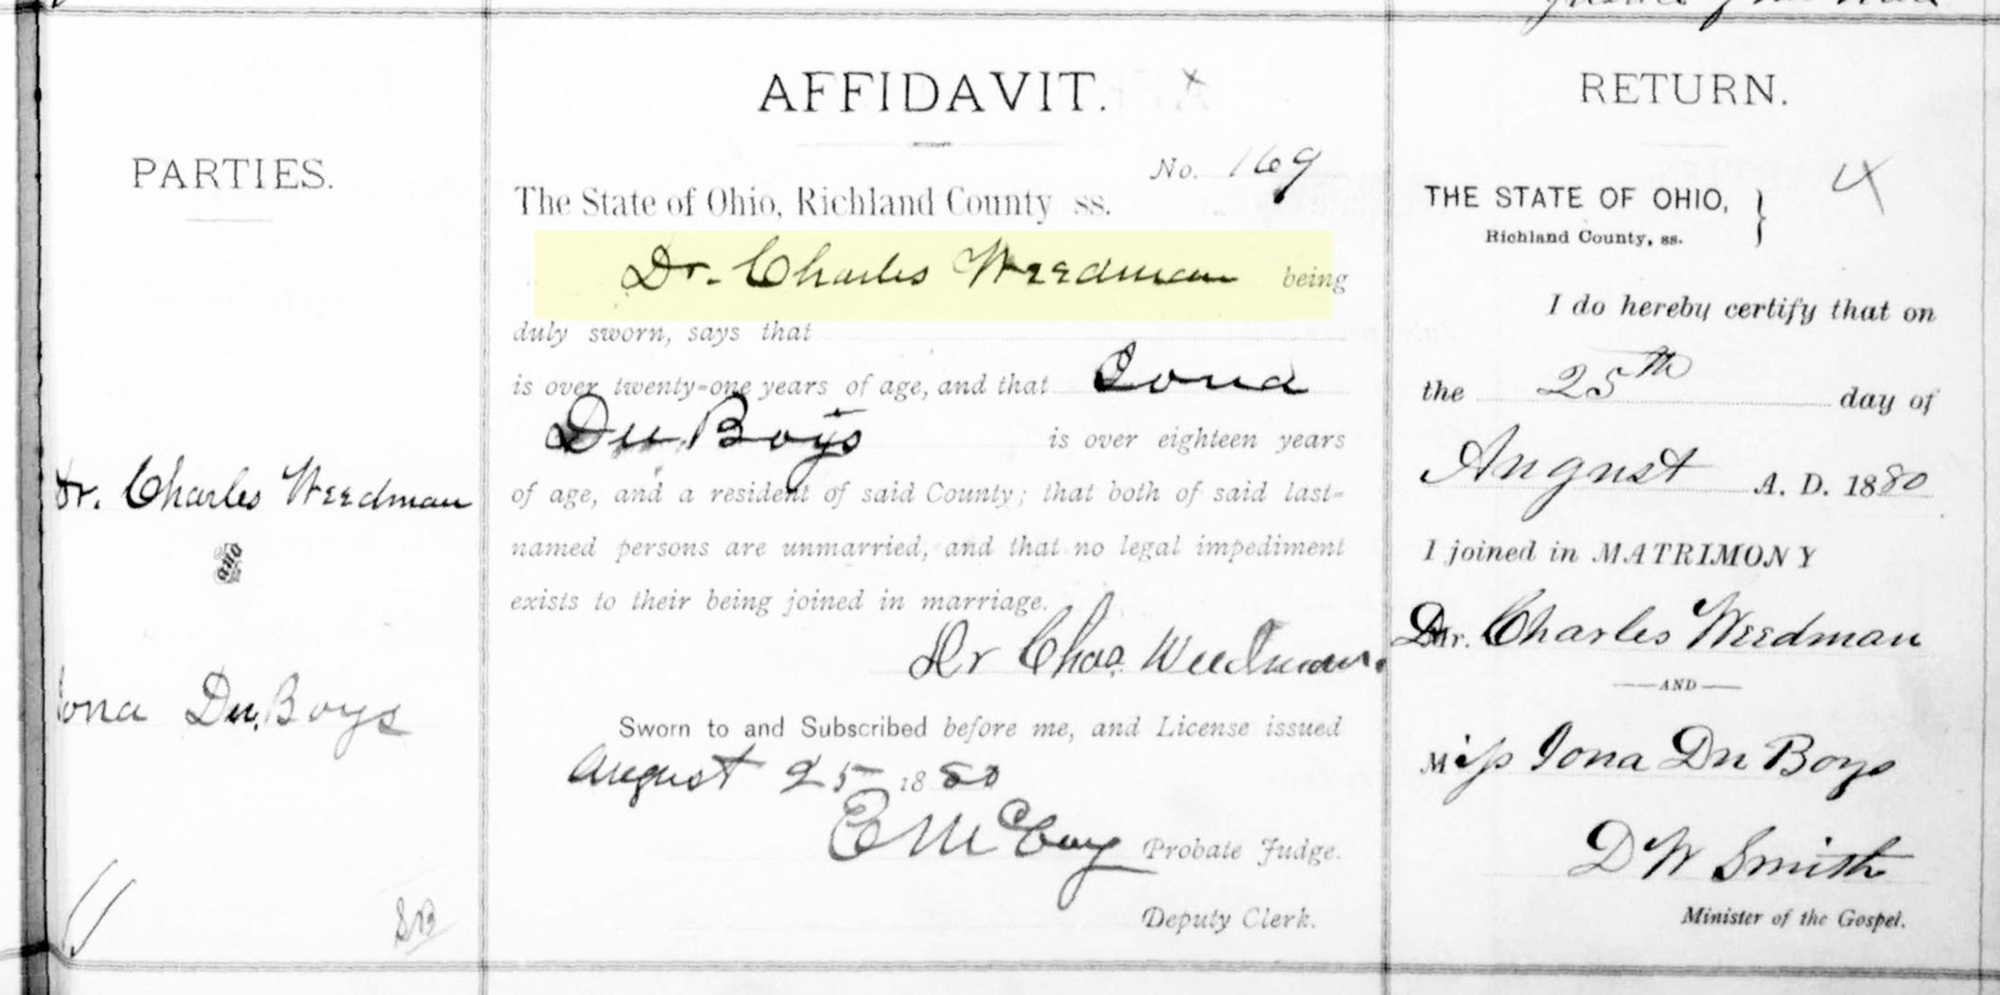 PARTIES.
Dr. Charles Weedman
and
Iona Du Boys
SB
AFFIDAVIT.
No. 169
The State of Ohio, Richland County ss.
Dr. Charles Weedman being
duly sworn, says that
is over twenty-one years of age, and that Iona
Du Boys is over eighteen years
of age, and a resident of said County; that both of said last-
named persons are unmarried, and that no legal impediment
exists to their being joined in marriage.
Dr Chas. Weedman.
Sworn to and Subscribed before me, and License issued
August 25 1880
E McCoy Probate Judge.
Deputy Clerk.
RETURN.
4
THE STATE OF OHIO,
Richland County, ss.
I do hereby certify that on
the 25th day of
August A. D. 1880
I joined in MATRIMONY
Dr. Charles Weedman
AND
Miss Iona Du Boys
D W Smith
Minister of the Gospel.